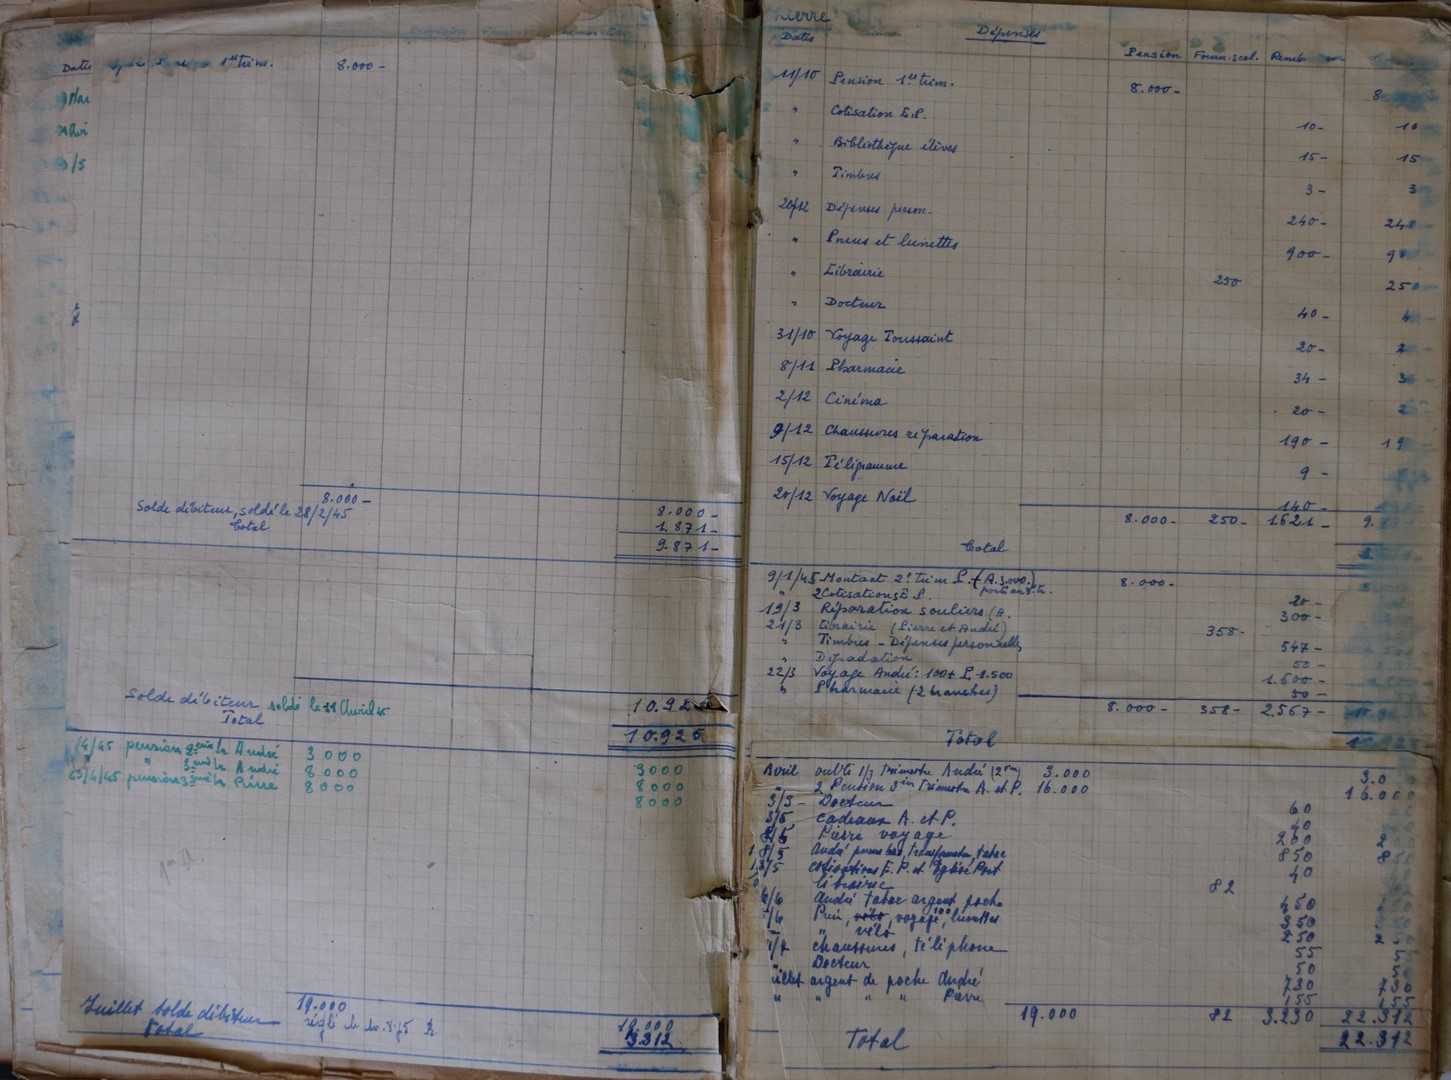 Dates 1er trim. 8.000-
8.000-
Solde débiteur, soldé le 28/2/45 8.000-
1.871-
Total
9.871-
Solde débiteur soldé le 11 Avril 45 10.925
Total 10.925
/4/45 pension 2ème tr André 3000 3000
" 3ème tr André 8000 8000
/4/45 pension 3ème tr Pierre 8000 8000
19.000
Juillet Solde débiteur réglé le 19.000
Total 3312
Pierre
Dates Dépenses Pension Fourn. scol. Remb.
11/10 Pension 1er trim. 8.000- 8
" Cotisation E.P. 10- 10
" Bibliothèque élèves 15- 15
" Timbres 3- 3
20/12 Dépenses person. 240- 24
" Pneus et lunettes 900- 9
" Librairie 250 250
" Docteur 40- 4
31/10 Voyage Toussaint 20- 2
8/11 Pharmacie 34- 3
2/12 Cinéma 20- 2
9/12 Chaussures réparation 190- 19
15/12 Télégramme 9-
20/12 Voyage Noël 140-
8.000- 250- 1621- 9.
Total
9/1/45 Montant 2e trim P. + (A. 3.000.) 8.000-
" 2 Cotisations E.P. 20-
19/3 Réparation souliers (A. 300-
21/3 Librairie (Pierre et André) 358-
" Timbres - Dépenses personnelles 547-
" Dégradation 50-
22/3 Voyage André: 100 + P. 1.500 1.600-
" Pharmacie (2 branches) 50-
8.000- 358- 2.567-
Total 10.925
Avril oublié 1/3 trimestre André (2em) 3.000 3.0
" 2 Pension 3em trimestre A. et P. 16.000 16.000
3/3- Docteur 60
3/5 cadeaux A. et P. 40
Pierre voyage 200 2
8/5 André pneu tabac 850 8
/5 cotisations E.P. et Eglise Port 40
librairie 82
6/6 André tabac argent poche 450
/6 voyage 100, lunettes 350
" vélo 250 2
1/7 chaussures, téléphone 55
Docteur 50
uillet argent de poche André 730 730
" " " " Pierre 155 155
19.000 82 3.230 22.312
Total 22.312